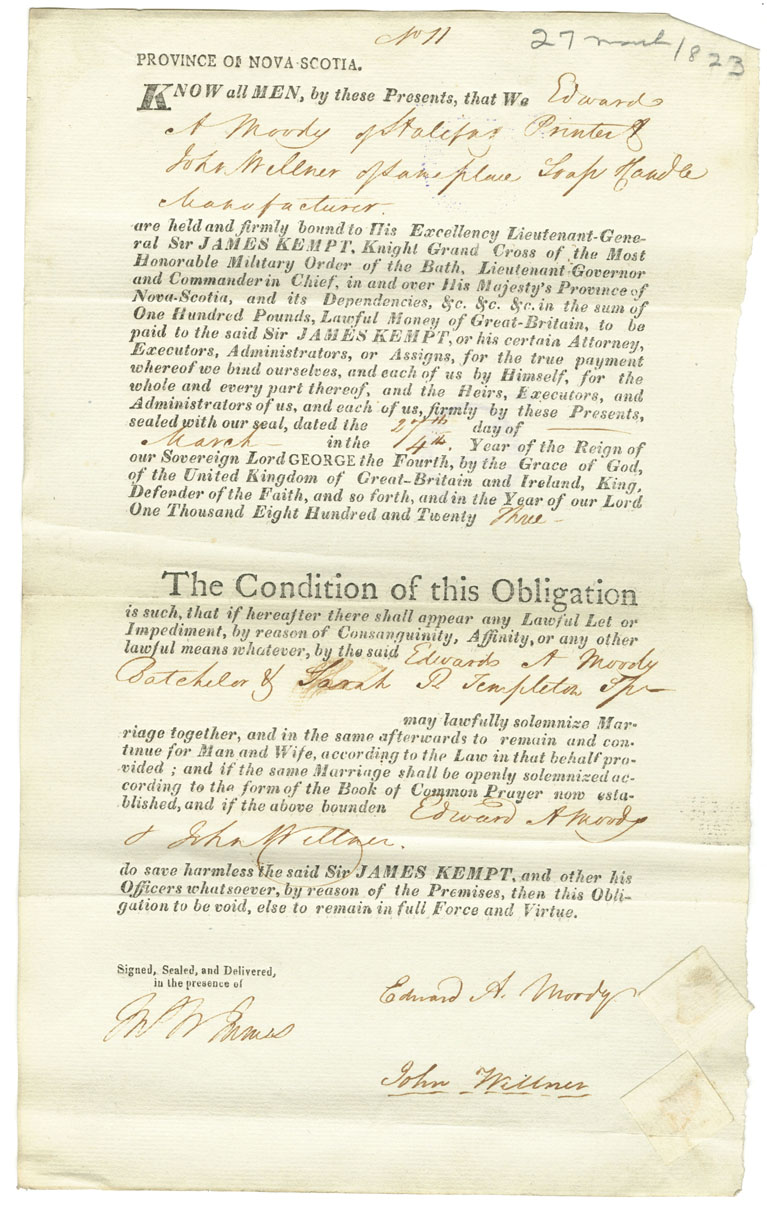 No 11
27 March 1823
PROVINCE OF NOVA-SCOTIA.
KNOW all MEN, by these Presents, that We Edward
A Moody of Halifax Printer &
John Willner of same place Soap & Candle
Manufacturer.
are held and firmly bound to His Excellency Lieutenant-Gene-
ral Sir JAMES KEMPT, Knight Grand Cross of the Most
Honorable Military Order of the Bath, Lieutenant-Governor
and Commander in Chief, in and over His Majesty's Province of
Nova-Scotia, and its Dependencies, &c. &c. &c. in the sum of
One Hundred Pounds, Lawful Money of Great-Britain, to be
paid to the said Sir JAMES KEMPT, or his certain Attorney,
Executors, Administrators, or Assigns, for the true payment
whereof we bind ourselves, and each of us by Himself, for the
whole and every part thereof, and the Heirs, Executors, and
Administrators of us, and each of us, firmly by these Presents,
sealed with our seal, dated the 27th day of
March in the 4th. Year of the Reign of
our Sovereign Lord GEORGE the Fourth, by the Grace of God,
of the United Kingdom of Great-Britain and Ireland, King,
Defender of the Faith, and so forth, and in the Year of our Lord
One Thousand Eight Hundred and Twenty Three
The Condition of this Obligation
is such, that if hereafter there shall appear any Lawful Let or
Impediment, by reason of Consanguinity, Affinity, or any other
lawful means whatever, by the said Edward A Moody
Batchelor & Sarah R Templeton Spr
may lawfully solemnize Mar-
riage together, and in the same afterwards to remain and con-
tinue for Man and Wife, according to the Law in that behalf pro-
vided ; and if the same Marriage shall be openly solemnized ac-
cording to the form of the Book of Common Prayer now esta-
blished, and if the above bounden Edward A Moody
& John Willner.
do save harmless the said Sir JAMES KEMPT, and other his
Officers whatsoever, by reason of the Premises, then this Obli-
gation to be void, else to remain in full Force and Virtue.
Signed, Sealed, and Delivered,
in the presence of
Edward A. Moody
John Willner